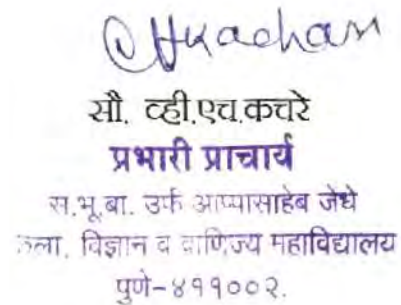 सौ. व्ही.एच.कचरे
प्रभारी प्राचार्य
स.भू.बा. उर्फ आप्पासाहेब जेधे
कला, विज्ञान व वाणिज्य महाविद्यालय
पुणे-४११००२.